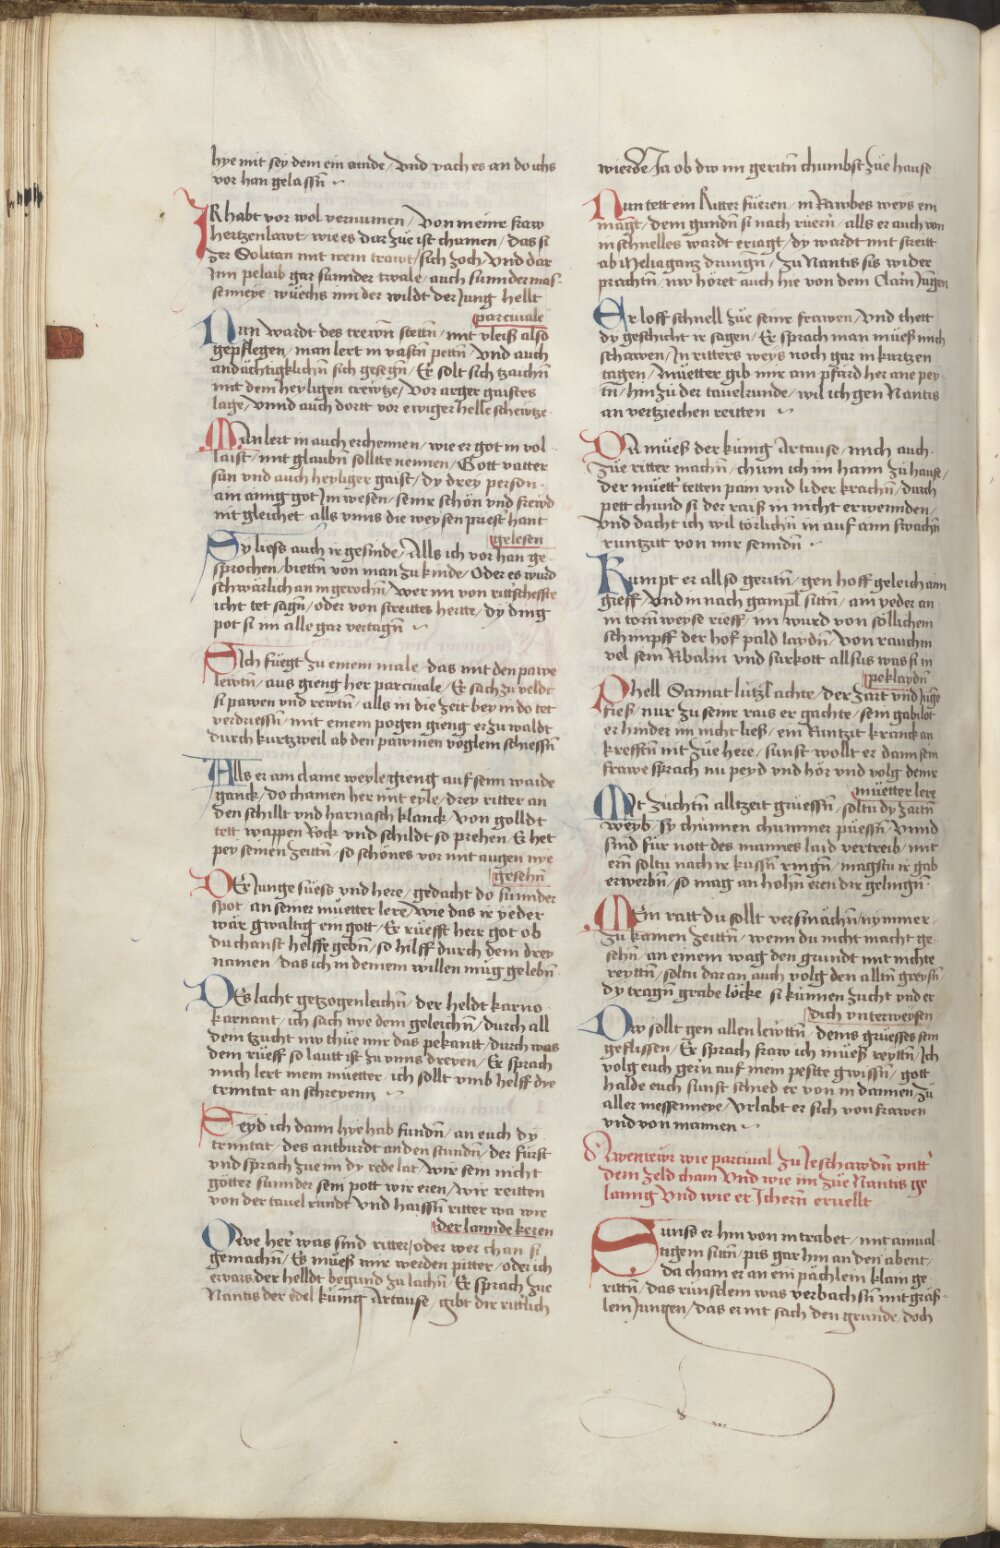 hye mit sey dem ein ainde / Vnd vach es an do ichs
vor han gelassn̄
IR habt vor wol vernumen / Von meinr fraw
hertzenlawt / wie es dar zúe ist chumen / das si
zer Solitan mit irem trawt / sich zoch Vnd dar
Inn pelaib gar sunnder twale / auch sunnder mas-
seneye wúechs inn der wildt der Jung hellt
parcivale
Nun wardt des trewn̄ stettn̄ / mit vleiß also
gepflegen / man lert in vastn̄ pettn̄ Vnd auch
andächtigklichn̄ sich gesegn̄ / Er solt sich tzaichn̄
mit dem heyligen crewtze / Vor arger gaistes
lage / Vnnd auch dortt vor ewiger helle schewtze
Man lert in auch erchennen / wie er got in vol
laist / mit glaubn̄ sollte nennen / Gott vatter
sun vnd auch heyliger gaist / dy drey person
ain ainig got Im wesen / seinr schön vnd frewd
nit gleichet alls vnns die weysen priest' hant
gelesen
Sy liess auch ir gesinde / Alls ich vor han ge
sprochen / biettn̄ von man zu kinde / Oder es wurd
schwärlich an in gerochn̄ / Wer im von rittscheffte
icht tet sagn̄ / oder von streittes hertte / dy ding
pot si im alle gar vertagn̄
Sich fúegt zu einem male / das mit den pawe
lewtn̄ / aus gieng her parcivale / Er sach zu veldt
si pawen vnd rewtn̄ / alls in die zeit bey in do tet
verdriessn̄ / mit einem pogen gieng er zu waldt
durch kurtzweil ab den pawmen vöglein schiessn̄
Alls er ain claine weyle gieng auf seinn waide
ganck / do chamen her mit eyle / drey ritter an
den schillt vnd harnasch klanck / Von golldt
tett wappen Rock vnd schildt so prehen / Er het
pey seinen zeittn̄ / so schönes vor mit augen nye
gesehn̄
Der Junge súess vnd here / gedacht do sunnder
spot / an seiner múetter lere / Wie das ir yeder
wär gwaltig ein gott / Er rúefft herr got ob
du chanst helffe gebn̄ / so hilff durch dein drey
namen / das ich in deinem willen múg gelebn̄
Des lacht getzogenleichn̄ / der heldt karno
karnant / ich sach nye dem geleichn̄ / durch all
dein tzucht nw thúe mir das pekantt / durch was
dein rúeff so lautt ist zu vnns dreyen / Er sprach
mich lert mein múetter / ich sollt vmb helff die
trinitat an schreyenn
Seyd ich dann hye hab fundn̄ / an euch dy
trinitat / des antburdt an den stundn̄ / der fúrst
vnd sprach zue im dy rede lat / Wir sein nicht
götter sunnder sein pott wir eren / Wir reitten
von der tauel rundt Vnd haissn̄ ritter wa wir
der lannde keren
Owe her' was sind ritter / oder wer chan si
gemachn̄ / Es múeß mir werden pitter / oder ich
ervars der helldt begund zu lachn̄ / Er sprach zue
Nantis der edel kúnig Artause / gibt dir rittlich
wierde / Ja ob dw im geritn̄ chumbst zúe hause
Nun tett ein Ritter fúeren / in Rawbes weys ein
magt / dem gundn̄ si nach rúern̄ / alls er auch von
in schnelles wardt eriagt / dy wardt mit streitt
ab Meliaganz drungn̄ / zu Nantis sis wider
prachtn̄ / nw höret auch hie von dem Clain Jungen
Er loff schnell zúe seinr frawen / Vnd thett
dy geschicht ir sagen / Er sprach man múeß mich
schawen / In ritters weys noch gar in kurtzen
tagen / Múetter gib mir ain pfärd her ane pey
tn̄ / hin zu der tauelrunde / wil ich gen Nantis
an vertziechen reitten
Da múeß der kúnig Artause / mich auch
zúe ritter machn̄ / chum ich im hann zú hause /
der múett' tetten pain vnd lider krachn̄ / durch
pett chund si der raiß in nicht erwennden /
Vnd dacht ich wil törlichn̄ in auf ainn swachn̄
runtzitt von mir senndn̄
Kumpt er allso geritn̄ / gen hoff geleich ainn
gieff / Vnd in nach gampl sittn̄ / ain yeder an
in torn̄ weyse rieff / im wurd von söllichem
schimpff der hof pald laydn̄ / Von rauchin
vel sein Ribalin vnd surkott allsus was si in
peklaydn̄
Phell Samat lútzl achte / der zart vnd súge
fieß / nur zu seinr rais er gachte / sein gabilot
er hinder im nicht ließ / ein Runtzit kranck an
kressen nit zúe here / sunst wollt er dann sein
frawe sprach nu peyd vnd hör vnd volg deinr
múetter lere
Mit zúchtn̄ alltzeit grúessn̄ / soltu dy zartn̄
weyb / sy chúnnen chummer púessn̄ / Vnnd
sind fúr nott des mannes laid vertreib / mit
ern̄ soltu nach ir kussn̄ ringn̄ / magstu ir gab
erwerbn̄ / so mag an hohn̄ eren dir gelingn̄
Mein ratt du sollt versmächn̄ nymmer
zu kainen zeittn̄ / wenn du nicht macht ge
sehn̄ / an einem wag den grundt mit nichte
reyttn̄ / soltu dar an auch volg den alltn̄ greysn̄
dy tragn̄ grabe löcke si kúnnen zucht vnd er
dich vnterweysen
Dw sollt gen allen lewttn̄ / deins grúesses sein
geflissen / Er sprach fraw ich múeß reyttn̄ / Ich
volg euch gern auf mein peste gwissn̄ / gott
halde euch sunst schied er von in dannen / zú
aller messenneye / Vrlabt er sich von frawen
vnd von mannen
Awentewr wie parcival zu Jeschawdn̄ vntt'
dem zeld cham Vnd wie im zúe Nantis ge
lanng Vnd wie er Ichern̄ ervellt
Sunst er hin von in trabet / mit ainual
tigem sinn / pis gar hin an den abent /
da cham er an ein pächlein klain ge
rittn̄ / das rúnstlein was verbachsn̄ mit gräs-
lein Jungen / das er nit sach den grunde / doch